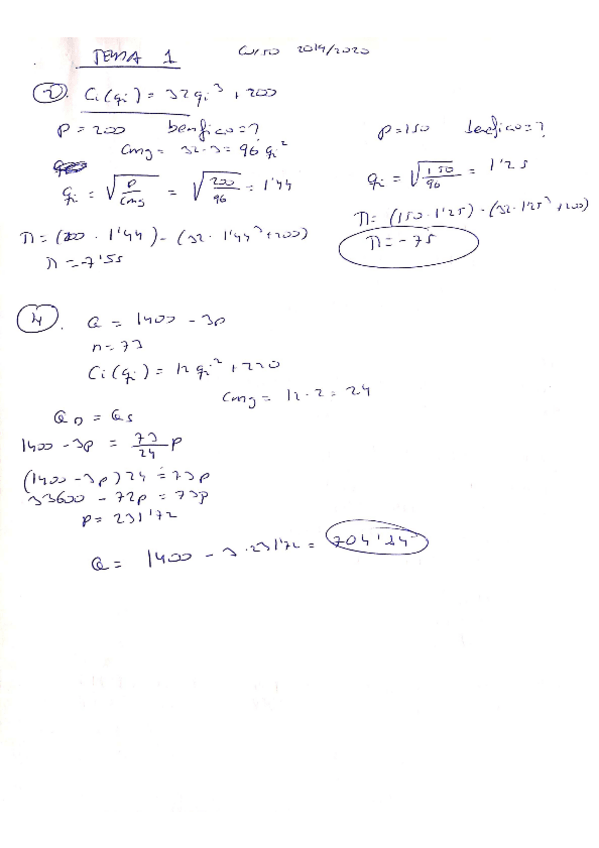 TEMA 1
Curso 2019/2020
2. Ci(qi) = 32qi³ + 200
p = 200 benfico = ?
Cmg = 32·3 = 96 qi²
qi = √(p/Cmg) = √(200/96) = 1'44
Π = (200 · 1'44) - (32 · 1'44³ + 200)
Π = -7'55
p = 150 benefico = ?
qi = √(150/96) = 1'25
Π = (150 · 1'25) - (32 · 1'25³ + 200)
Π = -75
4. Q = 1400 - 3p
n = 73
Ci(qi) = 12qi² + 220
Cmg = 12·2 = 24
QD = QS
1400 - 3p = 73/24 p
(1400 - 3p) 24 = 73p
33600 - 72p = 73p
p = 231'72
Q = 1400 - 3·231'72 = 704'84